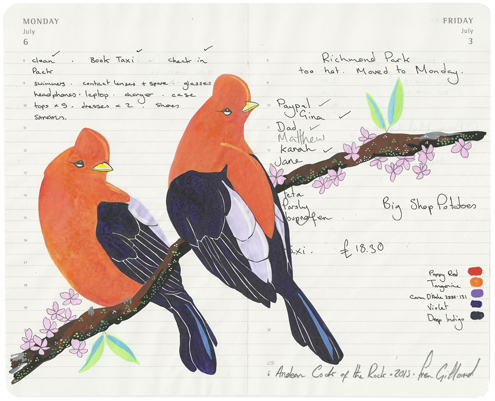 MONDAY
July
6
clean · Book Taxi · check-in
Pack
swimmers · contact lenses + spare · glasses
headphones · laptop · charger · case
tops x 5 · dresses x 2 · shoes
FRIDAY
July
3
Richmond Park
too hot. Moved to Monday.
Paypal
Gina
Dad
Matthew
Karah
Jane
feta
Parsley
Big Shop Potatoes
£18.30
Poppy Red
Tangerine
Violet
Deep Indigo
Andean Cock of the Rock · 2015 ·